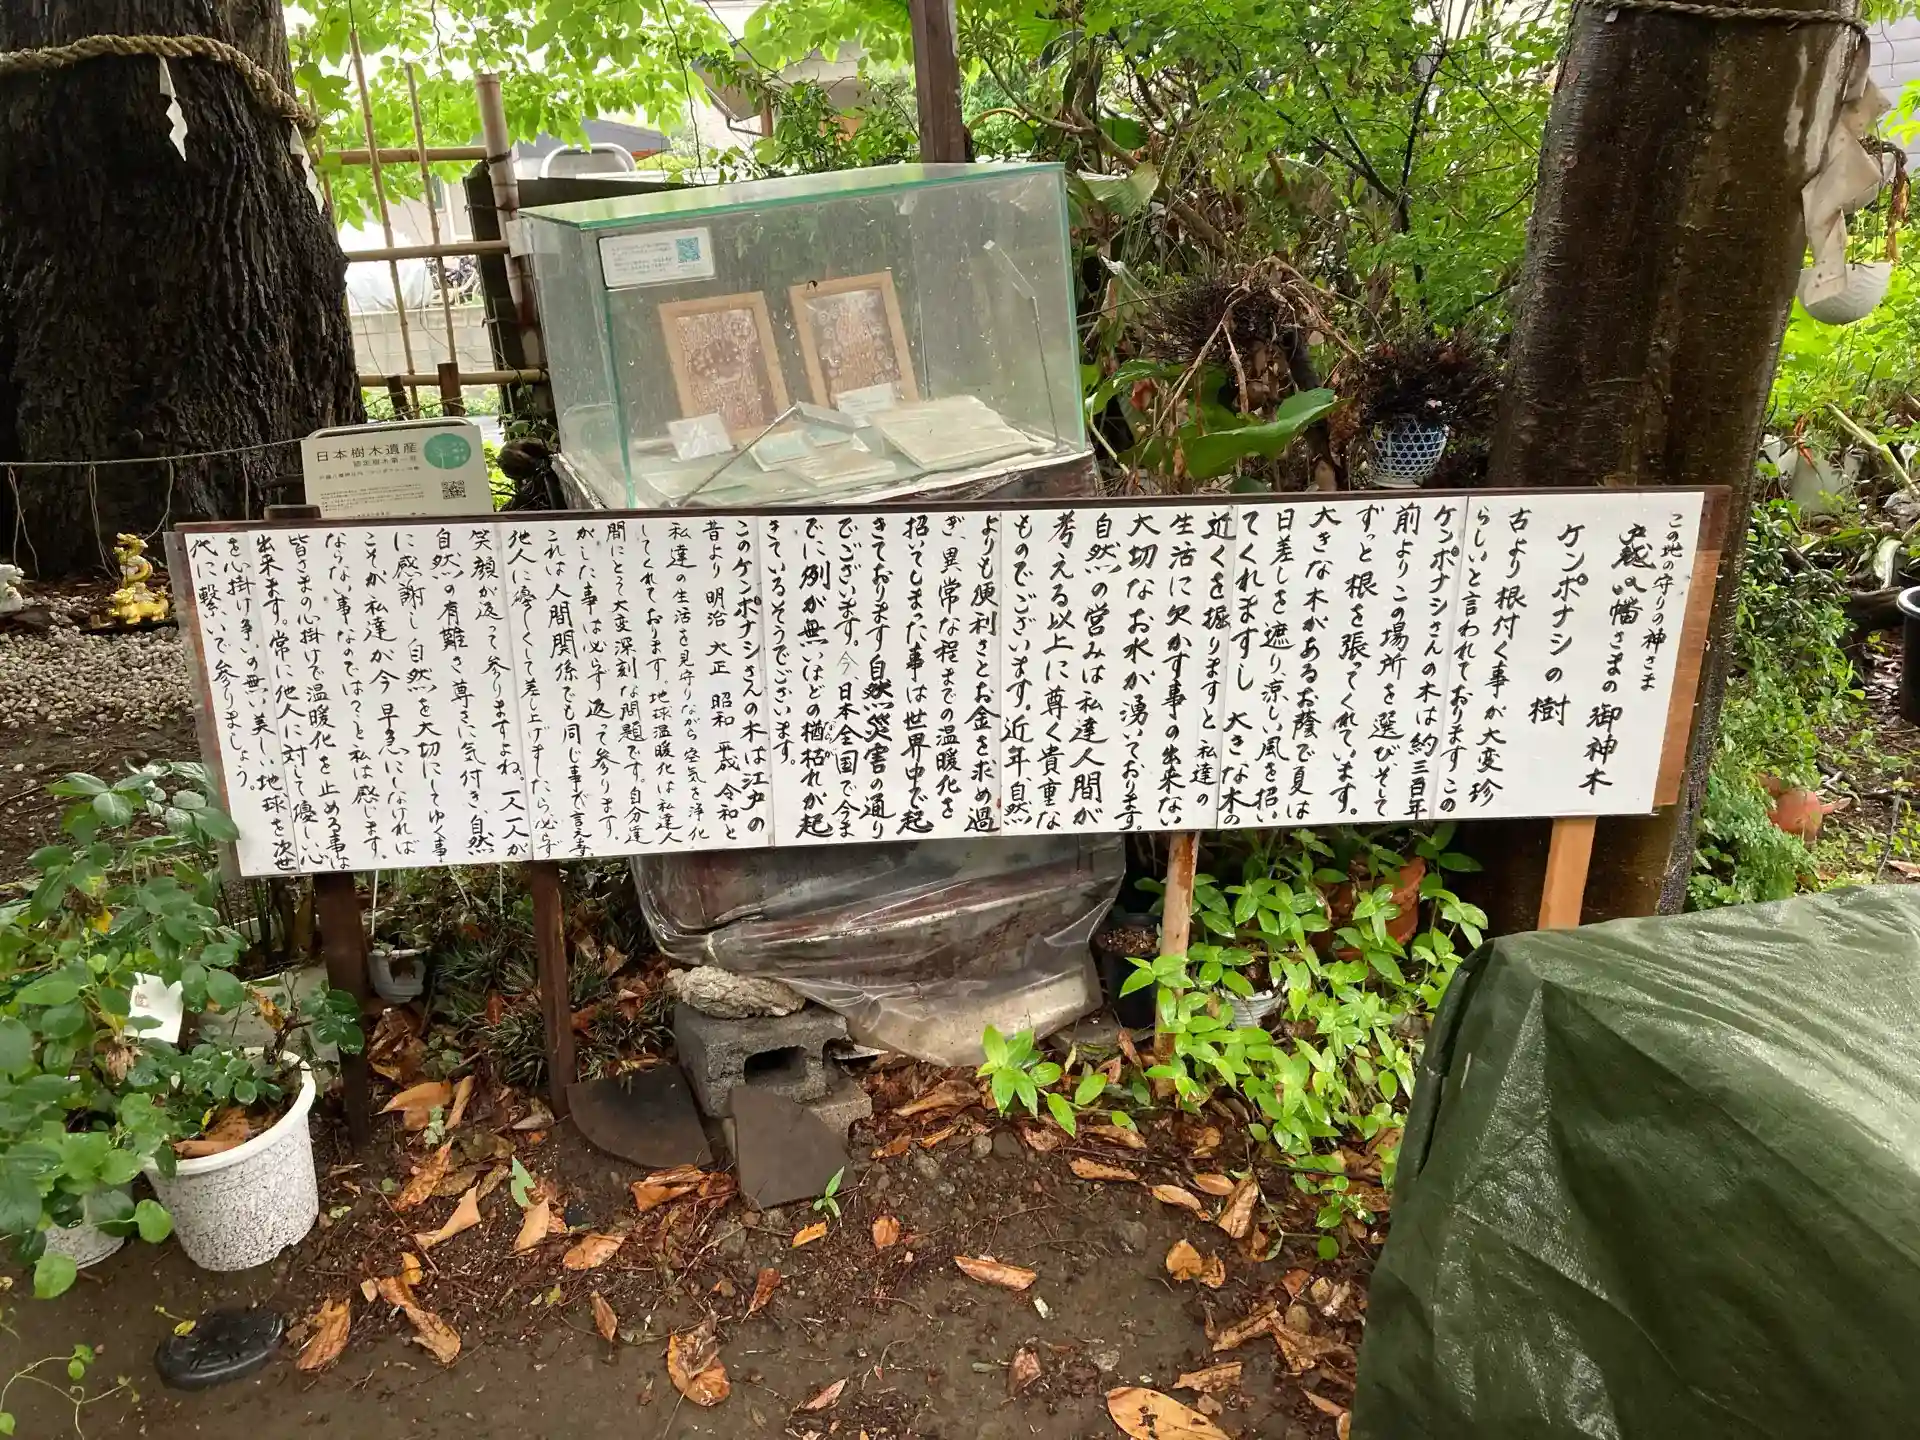 この地の守りの神さま
戸越八幡さまの御神木
ケンポナシの樹
古より根付く事が大変珍
らしいと言われております この
ケンポナシさんの木は約三百年
前よりこの場所を選びそして
ずっと根を張ってくれています。
大きな木があるお蔭で夏は
日差しを遮り涼しい風を招い
てくれますし 大きな木の
近くを掘りますと私達の
生活に欠かす事の出来ない
大切なお水が湧いております。
自然の営みは私達人間が
考える以上に尊く貴重な
ものでございます。近年、自然
よりも便利さとお金を求め過
ぎ、異常な程までの温暖化を
招いてしまった事は世界中で起
きております自然災害の通り
でございます。今、日本全国で今ま
でに例が無いほどの楢枯れが起
きているそうでございます。
このケンポナシさんの木は江戸の
昔より 明治 大正 昭和 平成 令和と
私達の生活を見守りながら 空気を浄化
してくれております。地球温暖化は私達人
間にとって大変深刻な問題です。自分達
がした事は必らず返って参ります。
これは人間関係でも同じ事で言え事、
他人に優しくして差し上げましたら必らず
笑顔が返って参りますよね。一人一人が
自然の有難さ尊さに気付き、自然
に感謝し自然を大切にしてゆく事
こそが私達が今早急にしなければ
ならない事なのでは？と私は感じます。
皆さまの心掛けで温暖化を止める事は
出来ます。常に他人に対して優しい心
を心掛け争いの無い美しい地球を次世
代に繋いで参りましょう。
日本樹木遺産
認定樹木第一号